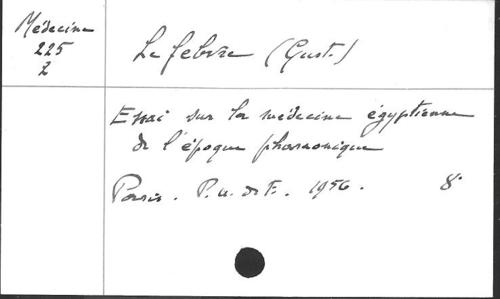 Médecine
225
2
Lefebvre (Gust.)
Essai sur la médecine égyptienne
de l'époque pharaonique
Paris. P.U. de F. 1956. 8°